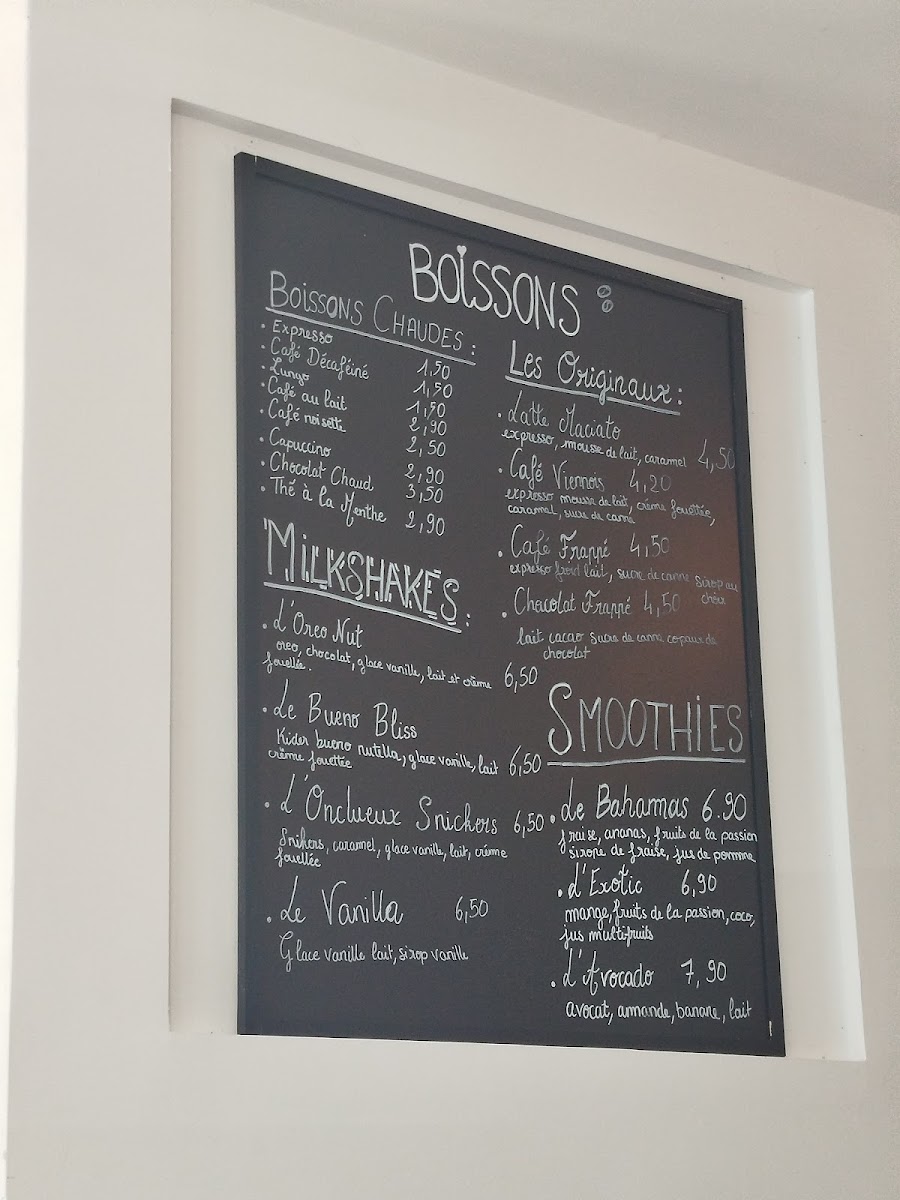 BOISSONS
BOISSONS CHAUDES :
• Expresso 1,50
• Café Décaféiné 1,50
• Lungo 1,50
• Café au lait 2,90
• Café noisette 2,50
• Capuccino 2,90
• Chocolat Chaud 3,50
• Thé à la Menthe 2,90
MILKSHAKES :
• L'Oreo Nut
oreo, chocolat, glace vanille, lait et crème 6,50
fouellée.
• Le Bueno Bliss
Kider bueno nutella, glace vanille, lait 6,50
crème fouettée
• L'Onclueux Snickers 6,50
Snikers, caramel, glace vanille, lait, crème
fouellée
• Le Vanilla 6,50
Glace vanille lait, sirop vanille
Les Originaux :
• Latte Maciato
expresso, mousse de lait, caramel 4,50
• Café Viennois 4,20
expresso mousse de lait, crème fouettée,
caramel, sucre de canne
• Café Frappé 4,50
expresso froid lait, sucre de canne sirop au
choix
• Chacolat Frappé 4,50
lait cacao sucre de canne copaux de
chocolat
SMOOTHIES
• Le Bahamas 6.90
fraise, ananas, fruits de la passion
sirope de fraise, jus de pomme
• L'Exotic 6,90
mange, fruits de la passion, coco,
jus multifruits
• L'Avocado 7,90
avocat, amande, banane, lait